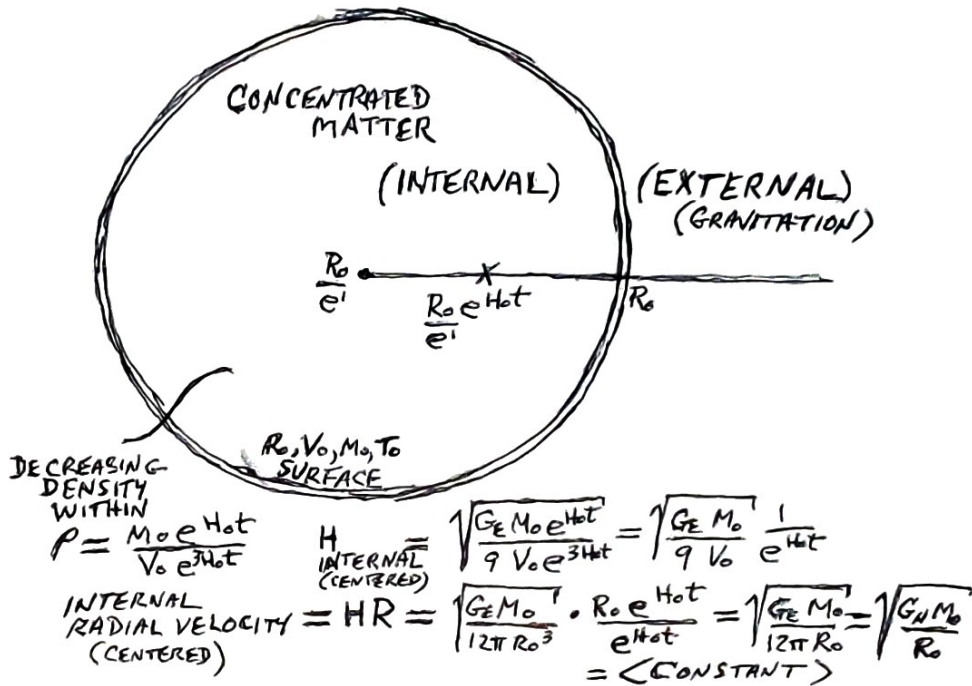 CONCENTRATED
MATTER
(INTERNAL)
(EXTERNAL)
(GRAVITATION)
R₀/e¹
R₀/e¹ e^H₀t
R₀
R₀, V₀, M₀, T₀
SURFACE
DECREASING
DENSITY
WITHIN
ρ = M₀ e^H₀t / V₀ e^3H₀t
H INTERNAL (CENTERED) = √(G_E M₀ e^H₀t / 9 V₀ e^3H₀t) = √(G_E M₀ / 9 V₀) 1/e^H₀t
INTERNAL
RADIAL VELOCITY
(CENTERED)
= HR = √(G_E M₀ / 12π R₀³) · R₀ e^H₀t / e^H₀t = √(G_E M₀ / 12π R₀) = √(G_N M₀ / R₀)
= <CONSTANT>